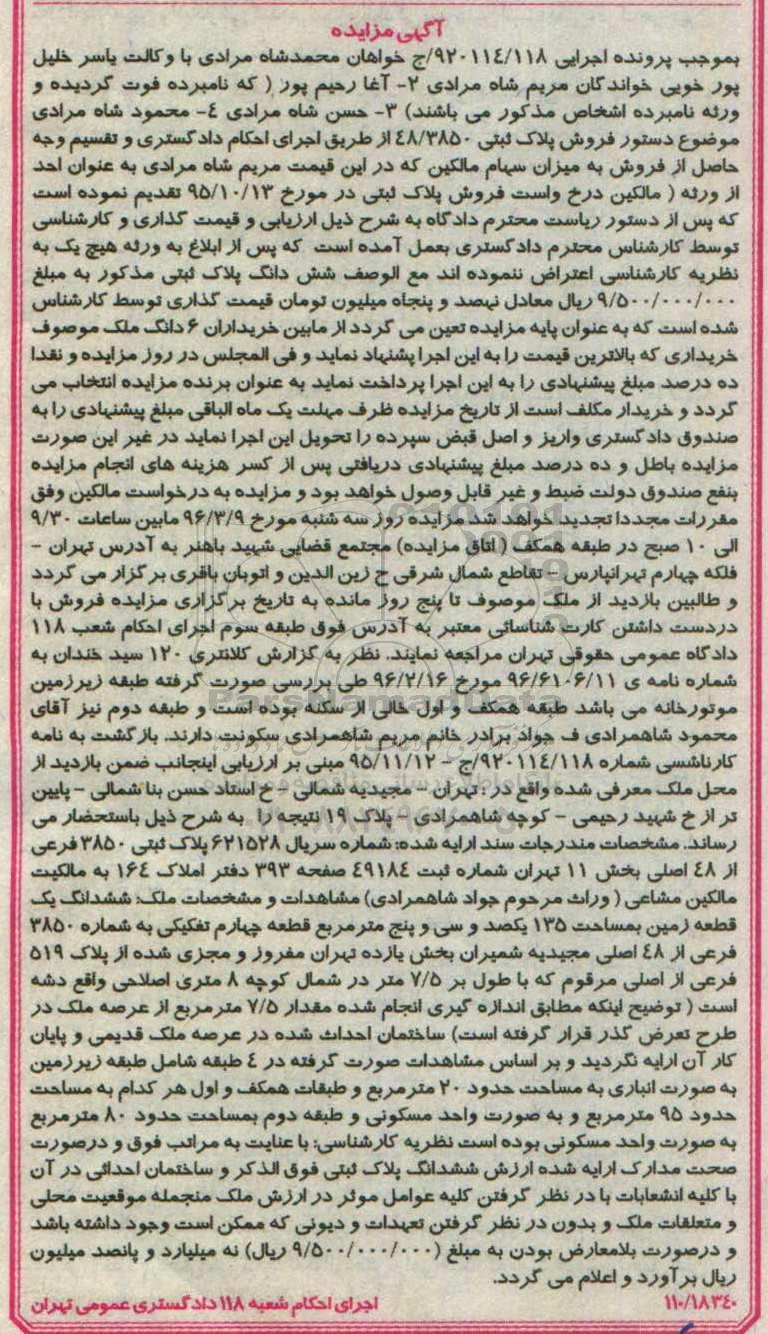 آگهی مزایده
بموجب پرونده اجرایی ۹۲۰۱۱٤/۱۱۸/ج خواهان محمدشاه مرادی با وکالت یاسر خلیل
پور خویی خواندگان مریم شاه مرادی ۲- آغا رحیم پور ( که نامبرده فوت گردیده و
ورثه نامبرده اشخاص مذکور می باشند) ۳- حسن شاه مرادی ٤- محمود شاه مرادی
موضوع دستور فروش پلاک ثبتی ٤٨/۳۸۵۰ از طریق اجرای احکام دادگستری و تقسیم وجه
حاصل از فروش به میزان سهام مالکین که در این قیمت مریم شاه مرادی به عنوان احد
از ورثه ( مالکین درخ واست فروش پلاک ثبتی در مورخ ۹۵/۱۰/۱۳ تقدیم نموده است
که پس از دستور ریاست محترم دادگاه به شرح ذیل ارزیابی و قیمت گذاری و کارشناسی
توسط کارشناس محترم دادگستری بعمل آمده است که پس از ابلاغ به ورثه هیچ یک به
نظریه کارشناسی اعتراض ننموده اند مع الوصف شش دانگ پلاک ثبتی مذکور به مبلغ
۹/۵۰۰/۰۰۰/۰۰۰ ریال معادل نهصد و پنجاه میلیون تومان قیمت گذاری توسط کارشناس
شده است که به عنوان پایه مزایده تعین می گردد از مابین خریداران ۶ دانگ ملک موصوف
خریداری که بالاترین قیمت را به این اجرا پشنهاد نماید و فی المجلس در روز مزایده و نقدا
ده درصد مبلغ پیشنهادی را به این اجرا پرداخت نماید به عنوان برنده مزایده انتخاب می
گردد و خریدار مکلف است از تاریخ مزایده ظرف مهلت یک ماه الباقی مبلغ پیشنهادی را به
صندوق دادگستری واریز و اصل قبض سپرده را تحویل این اجرا نماید در غیر این صورت
مزایده باطل و ده درصد مبلغ پیشنهادی دریافتی پس از کسر هزینه های انجام مزایده
بنفع صندوق دولت ضبط و غیر قابل وصول خواهد بود و مزایده به درخواست مالکین وفق
مقررات مجددا تجدید خواهد شد مزایده روز سه شنبه مورخ ۹۶/۳/۹ مابین ساعات ۹/۳۰
الی ۱۰ صبح در طبقه همکف ( اتاق مزایده) مجتمع قضایی شهید باهنر به آدرس تهران -
فلکه چهارم تهرانپارس - تقاطع شمال شرقی خ زین الدین و اتوبان باقری برگزار می گردد
و طالبین بازدید از ملک موصوف تا پنج روز مانده به تاریخ برگزاری مزایده فروش با
دردست داشتن کارت شناسائی معتبر به آدرس فوق طبقه سوم اجرای احکام شعب ۱۱۸
دادگاه عمومی حقوقی تهران مراجعه نمایند. نظر به گزارش کلانتری ۱۲۰ سید خندان به
شماره نامه ی ۹۶/۶۱۰۶/۱۱ مورخ ۹۶/۲/۱۶ طی بررسی صورت گرفته طبقه زیرزمین
موتورخانه می باشد طبقه همکف و اول خالی از سکنه بوده است و طبقه دوم نیز آقای
محمود شاهمرادی ف جواد برادر خانم مریم شاهمرادی سکونت دارند. بازگشت به نامه
کارناشسی شماره ۹۲۰۱۱٤/۱۱۸/ج - ۹۵/۱۱/۱۲ مبنی بر ارزیابی اینجانب ضمن بازدید از
محل ملک معرفی شده واقع در : تهران - مجیدیه شمالی - خ استاد حسن بنا شمالی - پایین
تر از خ شهید رحیمی - کوچه شاهمرادی - پلاک ۱۹ نتیجه را به شرح ذیل باستحضار می
رساند. مشخصات مندرجات سند ارایه شده: شماره سریال ۶۲۱۵۲۸ پلاک ثبتی ۳۸۵۰ فرعی
از ٤٨ اصلی بخش ۱۱ تهران شماره ثبت ٤۹۱۸٤ صفحه ۳۹۳ دفتر املاک ۱۶٤ به مالکیت
مالکین مشاعی ( وراث مرحوم جواد شاهمرادی) مشاهدات و مشخصات ملک: ششدانگ یک
قطعه زمین بمساحت ۱۳۵ یکصد و سی و پنج مترمربع قطعه چهارم تفکیکی به شماره ۳۸۵۰
فرعی از ٤٨ اصلی مجیدیه شمیران بخش یازده تهران مفروز و مجزی شده از پلاک ۵۱۹
فرعی از اصلی مرقوم که با طول بر ۷/۵ متر در شمال کوچه ۸ متری اصلاحی واقع دشه
است ( توضیح اینکه مطابق اندازه گیری انجام شده مقدار ۷/۵ مترمربع از عرصه ملک در
طرح تعرض گذر قرار گرفته است) ساختمان احداث شده در عرصه ملک قدیمی و پایان
کار آن ارایه نگردید و بر اساس مشاهدات صورت گرفته در ٤ طبقه شامل طبقه زیرزمین
به صورت انباری به مساحت حدود ۲۰ مترمربع و طبقات همکف و اول هر کدام به مساحت
حدود ۹۵ مترمربع و به صورت واحد مسکونی و طبقه دوم بمساحت حدود ۸۰ مترمربع
به صورت واحد مسکونی بوده است نظریه کارشناسی: با عنایت به مراتب فوق و درصورت
صحت مدارک ارایه شده ارزش ششدانگ پلاک ثبتی فوق الذکر و ساختمان احداثی در آن
با کلیه انشعابات با در نظر گرفتن کلیه عوامل موثر در ارزش ملک منجمله موقعیت محلی
و متعلقات ملک و بدون در نظر گرفتن تعهدات و دیونی که ممکن است وجود داشته باشد
و درصورت بلامعارض بودن به مبلغ (۹/۵۰۰/۰۰۰/۰۰۰ ریال) نه میلیارد و پانصد میلیون
ریال برآورد و اعلام می گردد.
۱۱۰/۱۸۳٤۰ اجرای احکام شعبه ۱۱۸ دادگستری عمومی تهران